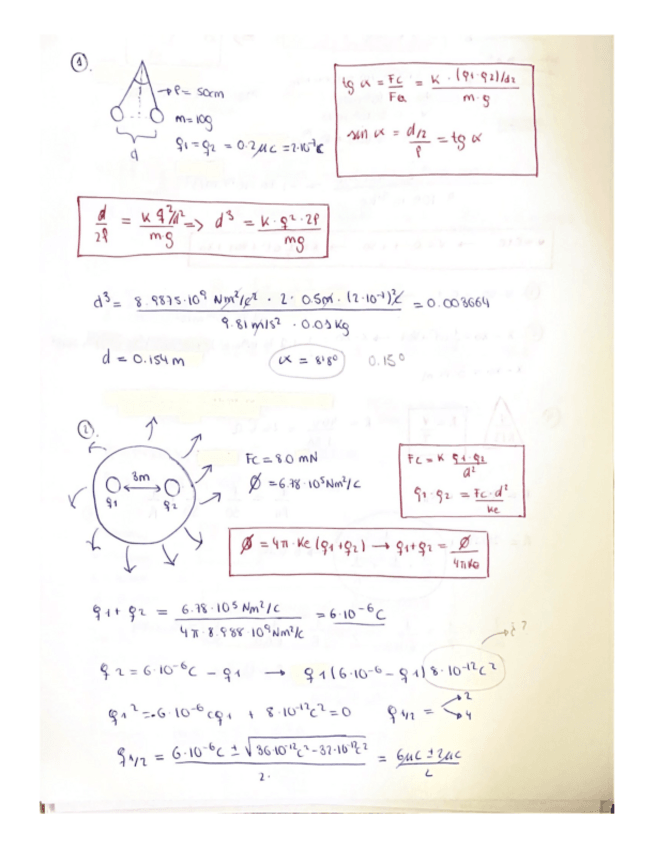 1.
l = 50cm
m = 10g
q1 = q2 = 0.2 μC = 2·10⁻⁷C
d
tg α = Fc/FG = K · (q1·q2)/d² / m·g
sin α = d/2 / l = tg α
d/2l = K q²/d² / mg => d³ = K·q²·2l / mg
d³ = 8.9875·10⁹ Nm²/C² · 2 · 0.5m · (2·10⁻⁷)²C² / 9.81 m/s² · 0.01 Kg = 0.003664
d = 0.154 m α = 8.8° 0.15°
2.
3m
q1 q2
Fc = 80 mN
Ø = 6.78·10⁵ Nm²/C
Fc = K q1·q2 / d²
q1·q2 = Fc·d² / Ke
Ø = 4π·Ke (q1+q2) → q1+q2 = Ø / 4πKe
q1 + q2 = 6.78·10⁵ Nm²/C / 4π·8.988·10⁹ Nm²/C = 6·10⁻⁶ C
¿?
q2 = 6·10⁻⁶C - q1 → q1 (6·10⁻⁶ - q1) 8·10⁻¹²C²
q1² = -6·10⁻⁶ C q1 + 8·10⁻¹²C² = 0 q1/2 = 2 4
q1/2 = 6·10⁻⁶C ± √36·10⁻¹²C² - 32·10⁻¹²C² / 2 = 6μC ± 2μC / 2